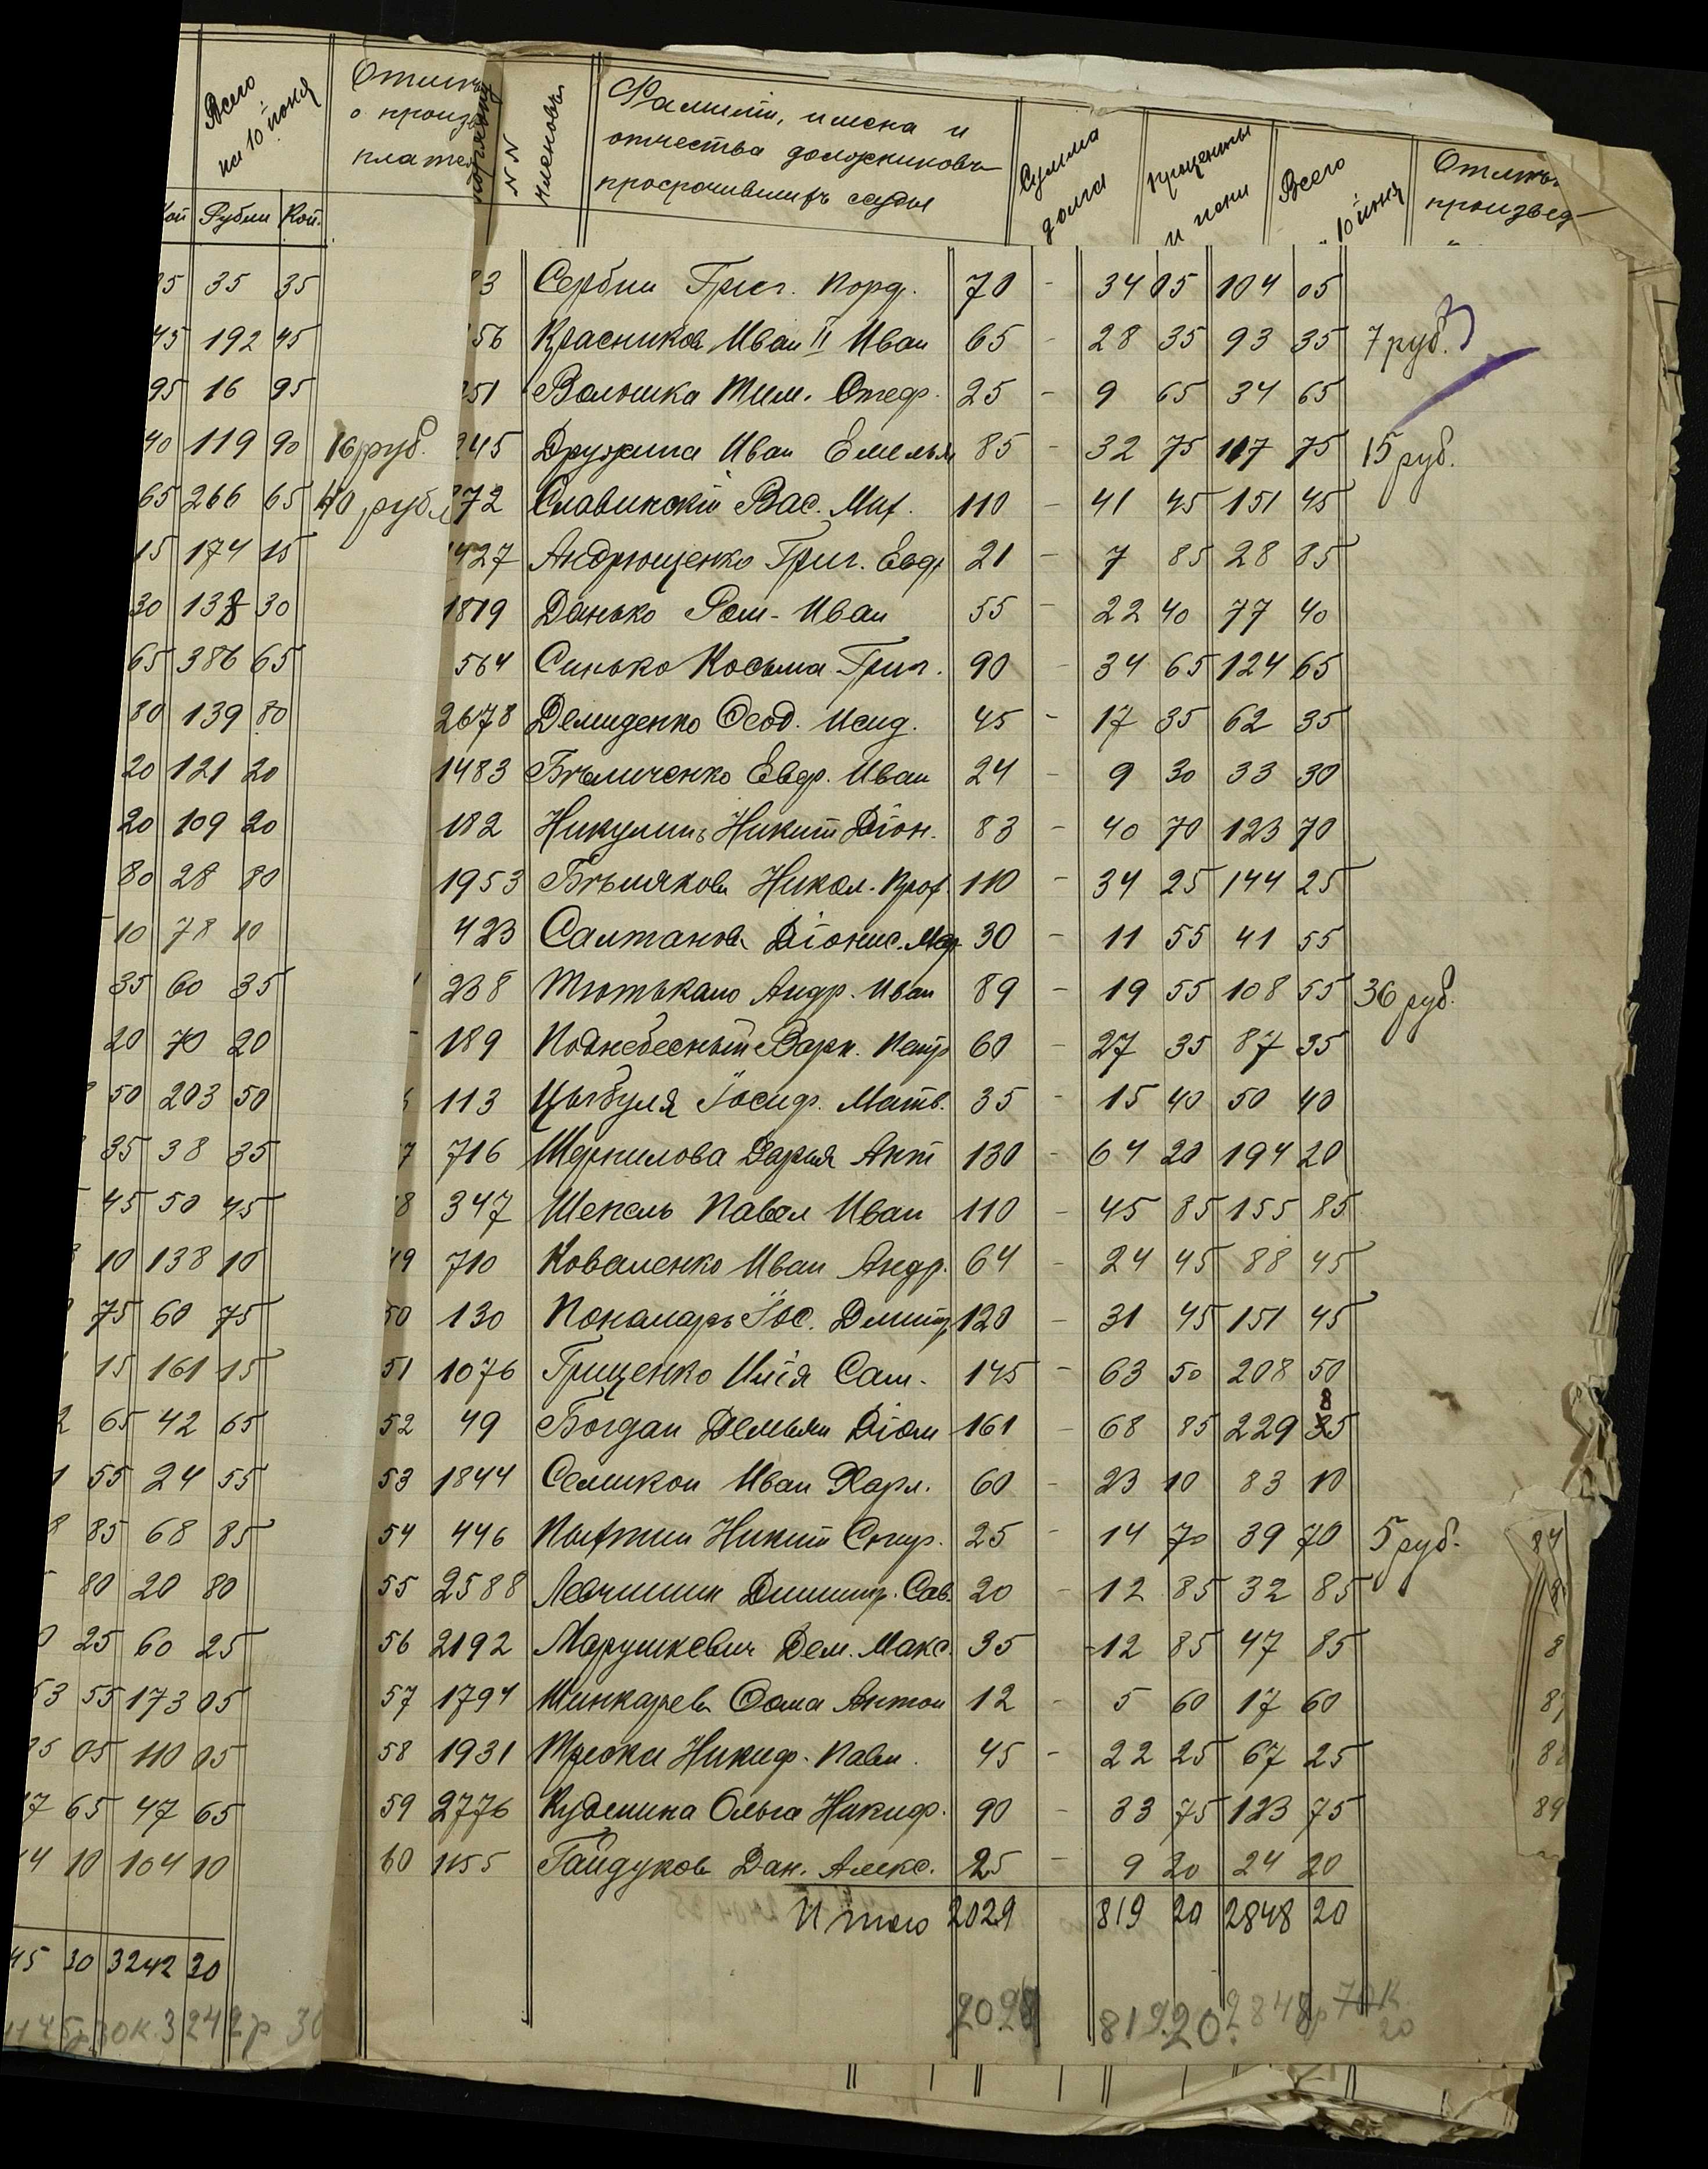 Всего на 10 іюня
Рубли Коп.
35 35 35
45 192 45
95 16 95
40 119 90 16 руб.
65 266 65 40 рубл
15 174 15
30 138 30
65 386 65
80 139 80
20 121 20
20 109 20
80 28 80
10 78 10
35 60 35
20 70 20
50 203 50
35 38 35
45 50 45
10 138 10
75 60 75
15 161 15
65 42 65
55 24 55
85 68 85
80 20 80
25 60 25
53 55 173 05
05 110 05
7 65 47 65
4 10 104 10
45 30 3242 30
1145р 30к. 3242р 30
NN членовъ
Фамиліи, имена и
отчества должниковъ
просрочившихъ ссуды
Сумма долга
проценты и пени
Всего 10 іюня
произвед
3 Сербин Григ. Порф. 70 - 34 05 104 05
56 Красников Иван II Иван 65 - 28 35 93 35 7 руб.
251 Волошка Тим. Стеф. 25 - 9 65 34 65
245 Дружина Иван Емельян 85 - 32 75 117 75 15 руб.
272 Славинскій Вас. Мих. 110 - 41 45 151 45
1427 Андрющенко Григ. Евд. 21 - 7 85 28 85
1819 Данько Ром. Иван 55 - 22 40 77 40
564 Синько Косьма Григ. 90 - 34 65 124 65
2678 Демиденко Ѳеод. Исид. 45 - 17 35 62 35
1483 Бѣличенко Евдр. Иван 24 - 9 30 33 30
182 Никулинъ Никит Діон. 83 - 40 70 123 70
1953 Бѣляковъ Никол. Проф 110 - 34 25 144 25
423 Салтановъ Діонис. Мар. 30 - 11 55 41 55
238 Тютькало Андр. Иван 89 - 19 55 108 55 36 руб.
189 Поднебесный Варк. Петр 60 - 27 35 87 35
113 Цыбуля Іосиф. Матв. 35 - 15 40 50 40
7 716 Шернилова Дарья Ант 130 - 64 20 194 20
8 347 Шепель Павел Иван 110 - 45 85 155 85
49 710 Коваленко Иван Андр. 64 - 24 45 88 45
50 130 Пономарь Іос. Дмитр 120 - 31 45 151 45
51 1076 Грищенко Илія Сам. 145 - 63 50 208 50
52 49 Богдан Демьян Діом 161 - 68 85 229 85
53 1844 Семикон Иван Харл. 60 - 23 10 83 10
54 446 Пыхтин Никит Спир. 25 - 14 70 39 70 5 руб.
55 2588 Левчишин Дмитр. Сав. 20 - 12 85 32 85
56 2192 Марушкевич Дем. Макс. 35 - 12 85 47 85
57 1794 Шинкарев Ѳома Антон 12 - 5 60 17 60
58 1931 Треска Никиф. Павл. 45 - 22 25 67 25
59 2776 Куделина Ольга Никиф. 90 - 33 75 123 75
60 1155 Гайдуков Дан. Алекс. 25 - 9 20 24 20
Итого 2029 819 20 2848 20
2029 819.20 2848р 20
84
8
87
88
89